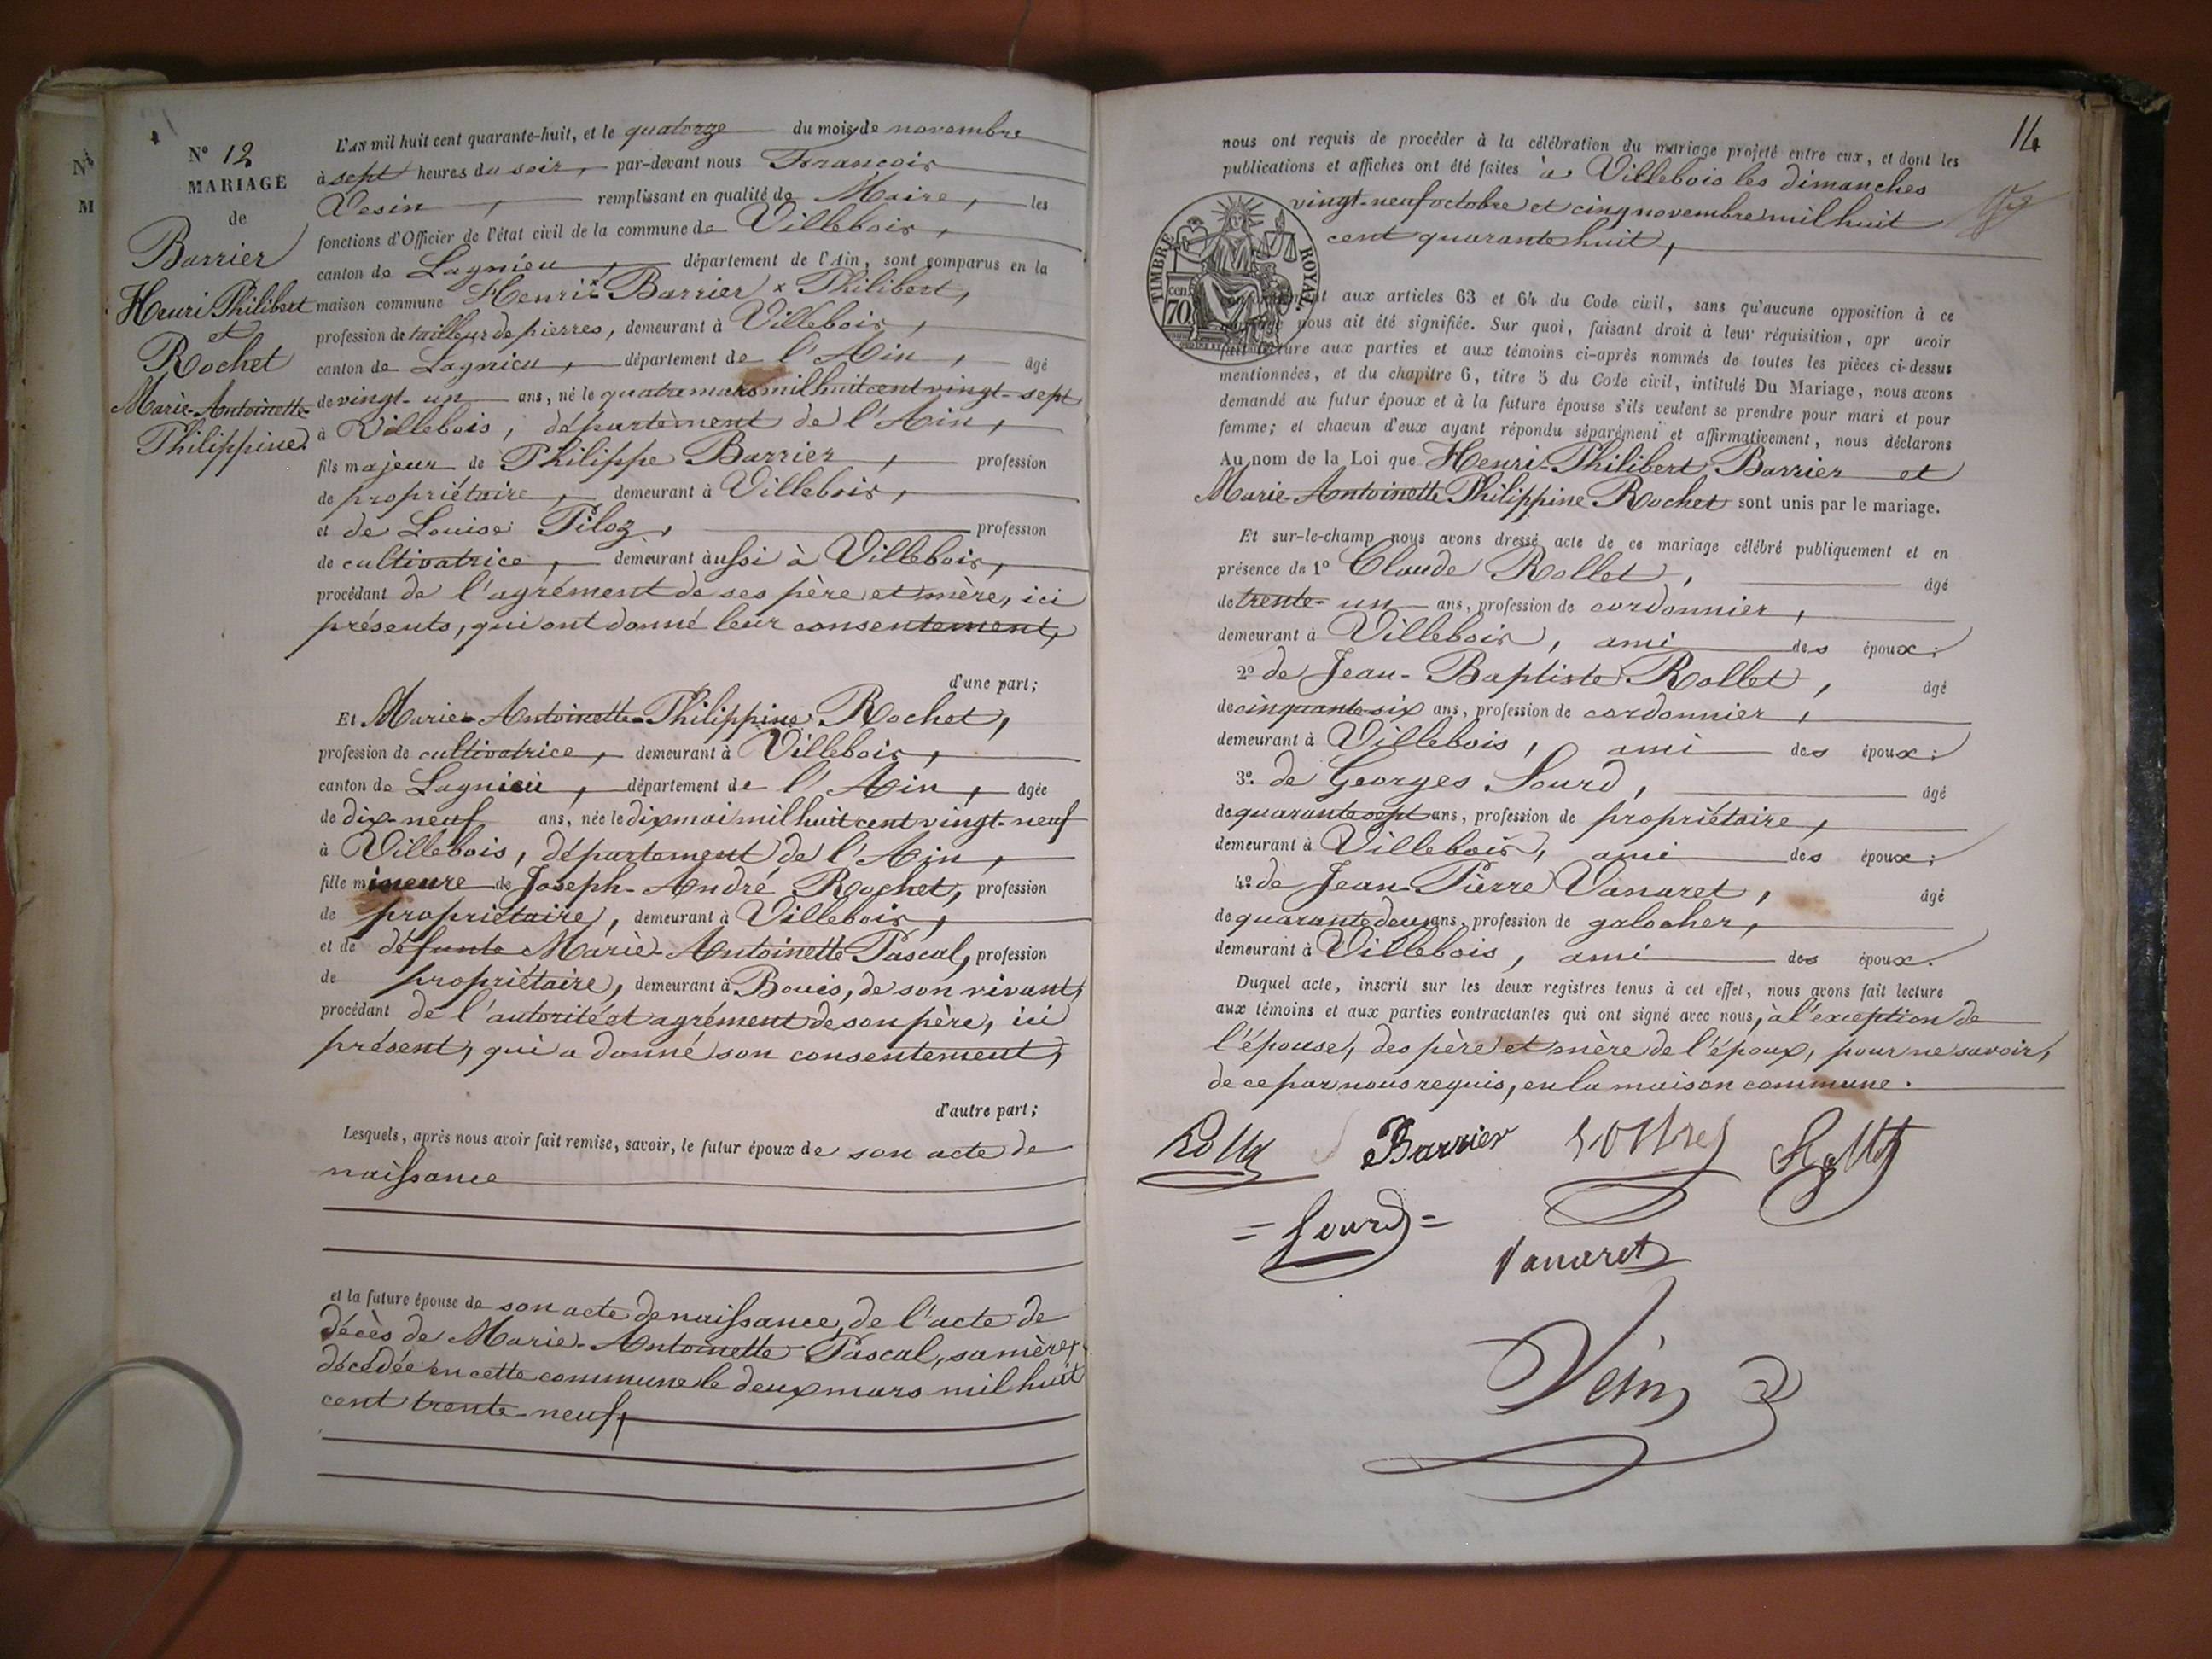 N° 12
MARIAGE
de
Barrier
Henri Philibert
et
Rochet
Marie-Antoinette-
Philippine.
L'AN mil huit cent quarante-huit, et le quatorze du mois de novembre
à sept heures du soir, par-devant nous François
Vesin, remplissant en qualité de Maire, les
fonctions d'Officier de l'état civil de la commune de Villebois,
canton de Lagnieu, département de l'Ain, sont comparus en la
maison commune Henri × Barrier × Philibert,
profession de tailleur de pierres, demeurant à Villebois,
canton de Lagnieu, département de l'Ain, âgé
de vingt-un ans, né le quatre mars mil huit cent vingt-sept
à Villebois, département de l'Ain,
fils majeur de Philippe Barrier, profession
de propriétaire, demeurant à Villebois,
et de Louise Piloz, profession
de cultivatrice, demeurant aussi à Villebois,
procédant de l'agrément de ses père et mère, ici
présents, qui ont donné leur consentement,
d'une part;
Et Marie-Antoinette-Philippine Rochet,
profession de cultivatrice, demeurant à Villebois,
canton de Lagnieu, département de l'Ain, âgée
de dix-neuf ans, née le dix mai mil huit cent vingt-neuf
à Villebois, département de l'Ain,
fille mineure de Joseph-André Rochet, profession
de propriétaire, demeurant à Villebois,
et de défunte Marie-Antoinette Pascal, profession
de propriétaire, demeurant à Bouis, de son vivant,
procédant de l'autorité et agrément de son père, ici
présent, qui a donné son consentement,
d'autre part;
Lesquels, après nous avoir fait remise, savoir, le futur époux de son acte de
naissance
et la future épouse de son acte de naissance, de l'acte de
décès de Marie-Antoinette Pascal, sa mère,
décédée en cette commune le deux mars mil huit
cent trente-neuf,
14
nous ont requis de procéder à la célébration du mariage projeté entre eux, et dont les
publications et affiches ont été faites à Villebois les dimanches
vingt-neuf octobre et cinq novembre mil huit
cent quarante huit,
TIMBRE ROYAL
cen
70
aux articles 63 et 64 du Code civil, sans qu'aucune opposition à ce
nous ait été signifiée. Sur quoi, faisant droit à leur réquisition, apr avoir
fait lecture aux parties et aux témoins ci-après nommés de toutes les pièces ci-dessus
mentionnées, et du chapitre 6, titre 5 du Code civil, intitulé Du Mariage, nous avons
demandé au futur époux et à la future épouse s'ils veulent se prendre pour mari et pour
femme; et chacun d'eux ayant répondu séparément et affirmativement, nous déclarons
Au nom de la Loi que Henri-Philibert Barrier et
Marie-Antoinette Philippine Rochet sont unis par le mariage.
Et sur-le-champ nous avons dressé acte de ce mariage célébré publiquement et en
présence de 1° Claude Rollet, âgé
de trente-un ans, profession de cordonnier,
demeurant à Villebois, ami des époux;
2° de Jean-Baptiste Rollet, âgé
de cinquante-six ans, profession de cordonnier,
demeurant à Villebois, ami des époux;
3° de Georges Sourd, âgé
de quarante sept ans, profession de propriétaire,
demeurant à Villebois, ami des époux;
4° de Jean-Pierre Vanaret, âgé
de quarante deux ans, profession de galocher,
demeurant à Villebois, ami des époux.
Duquel acte, inscrit sur les deux registres tenus à cet effet, nous avons fait lecture
aux témoins et aux parties contractantes qui ont signé avec nous, à l'exception de
l'épouse, des père et mère de l'époux, pour ne savoir,
de ce par nous requis, en la maison commune.
Barrier
= Sourd =
Vanaret
Vesin